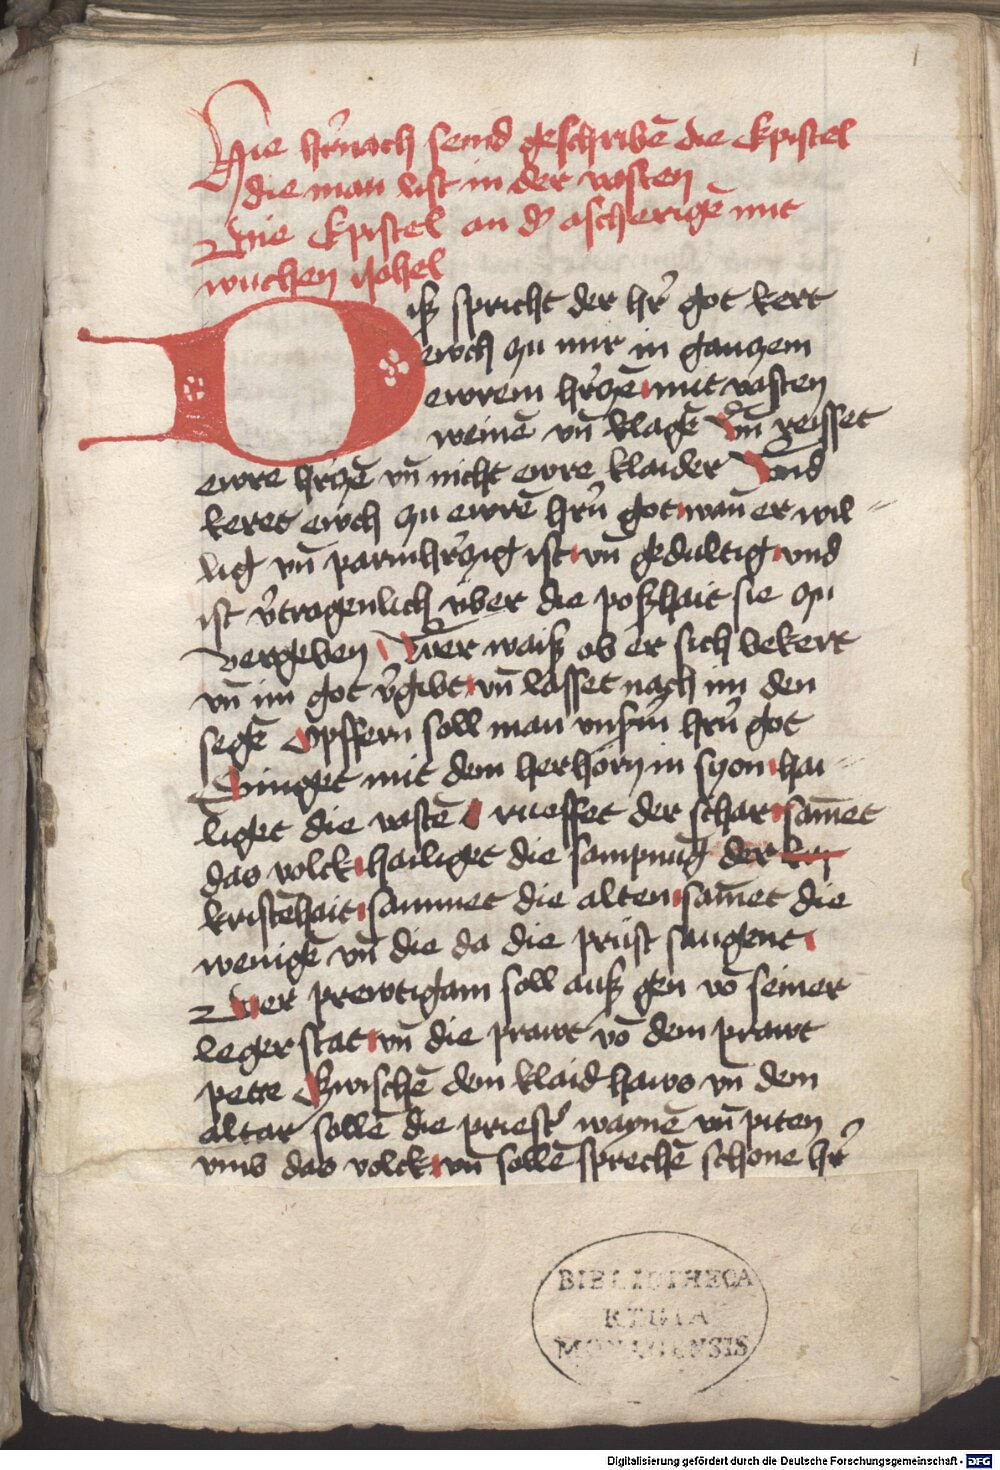 1
Hie hr̃nach seind geschribē die Epistel
die man list in der vasten
Die Epistel an dʼ ascherigē mit
wuchen Johel
Diß spricht der hr̃ got kert
ewch zu mir in ganczem
ewrem hr̃czē mit vasten
weinē vñ klagē Vñ reisset
ewre hr̃czē vñ nicht ewre klaider Vnd
keret ewch zu ewrē hrñ got wañ er wil-
lig vñ parmhr̃czig ist vñ gedultig vnd
ist v̄tragenlich vber die poßhait sie zu
vergeben Wer waiß ob er sich bekert
vñ im got v̄gibt vñ lasset nach im den
segē Opffern soll man vnsm̃ hrñ got
Singet mit dem herhorn in syon hai-
liget die vastē rueffet der schar sam̄et
das volck hailiget die sampnūg der
kristēhait sammet die alten sam̄et die
wenigē vñ die da die prüst saugent
Der prewtigam soll auß gen vō seiner
leger stat vñ die prawt vō dem prawt
pette Zwischē dem klaid haws vñ dem
altar sollē die priestʼ waynē vñ piten
vmb das volck vñ sollē sprechē schone hr̃
BIBLIOTHECA
REGIA
MONACENSIS
Digitalisierung gefördert durch die Deutsche Forschungsgemeinschaft - DFG